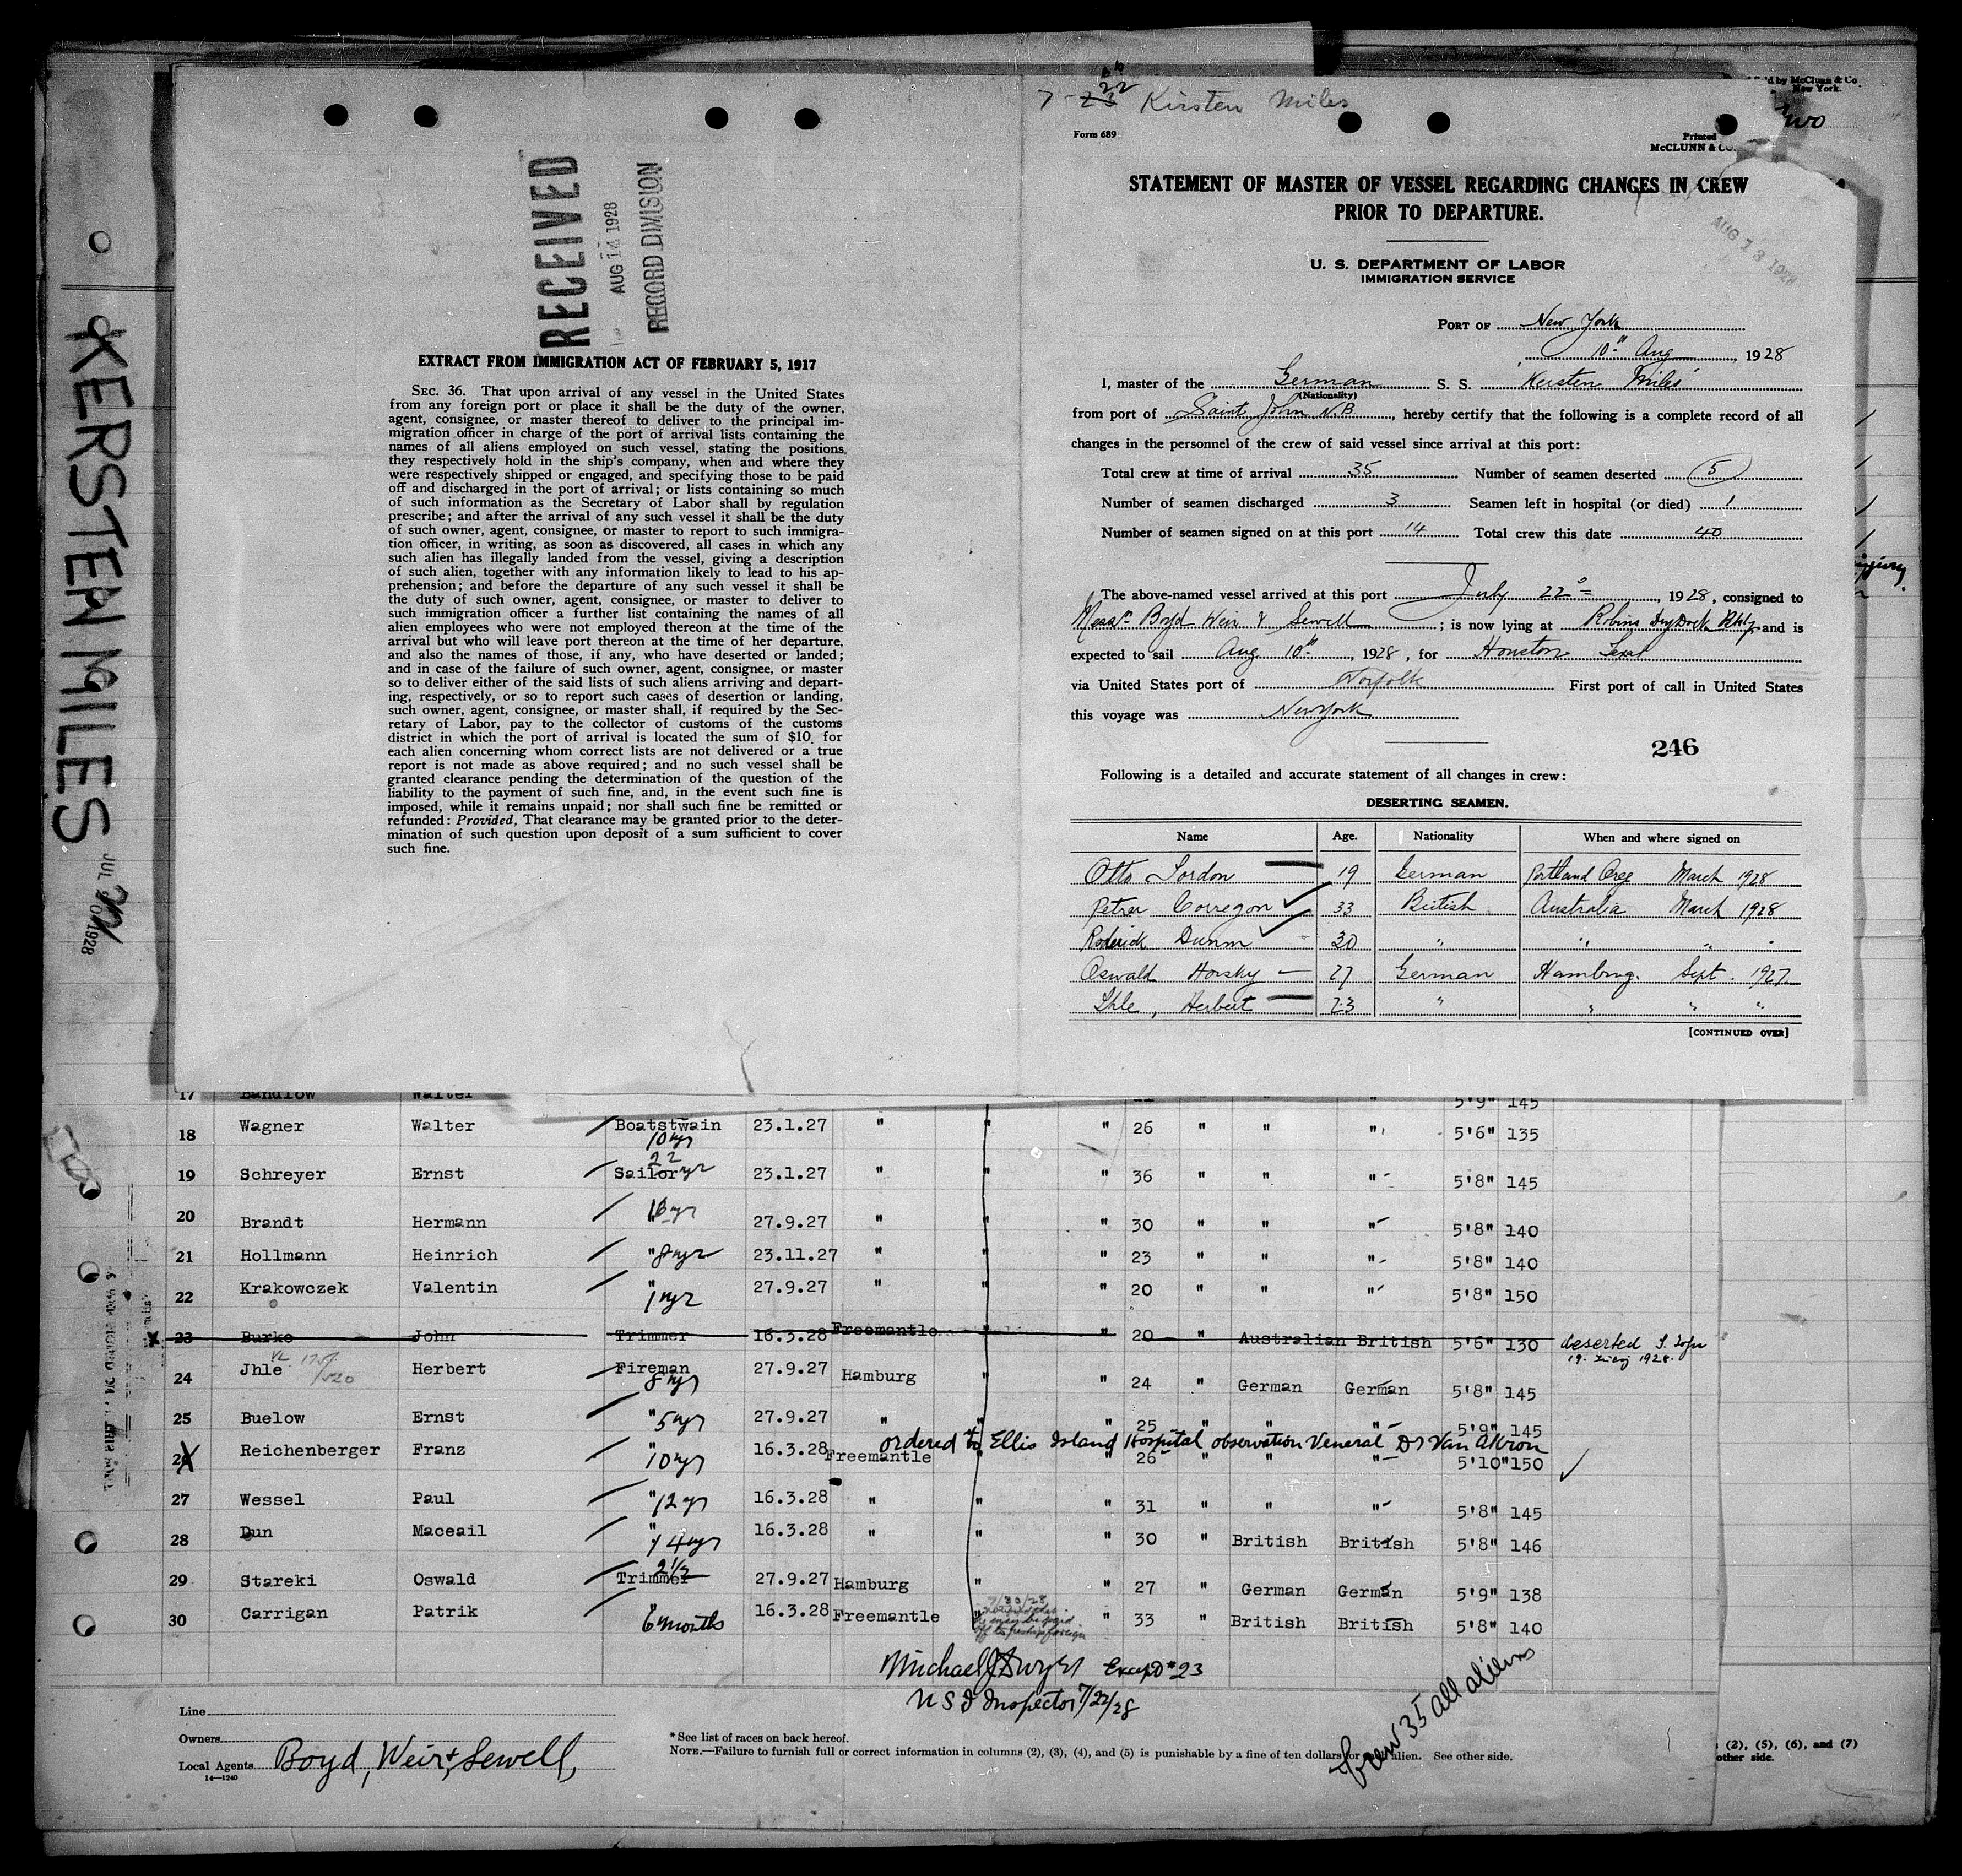 KERSTEN MILES
JUL 20 1928
RECEIVED
AUG 14 1928
RECORD DIVISION
EXTRACT FROM IMMIGRATION ACT OF FEBRUARY 5, 1917
SEC. 36. That upon arrival of any vessel in the United States
from any foreign port or place it shall be the duty of the owner,
agent, consignee, or master thereof to deliver to the principal im-
migration officer in charge of the port of arrival lists containing the
names of all aliens employed on such vessel, stating the positions
they respectively hold in the ship's company, when and where they
were respectively shipped or engaged, and specifying those to be paid
off and discharged in the port of arrival; or lists containing so much
of such information as the Secretary of Labor shall by regulation
prescribe; and after the arrival of any such vessel it shall be the duty
of such owner, agent, consignee, or master to report to such immigra-
tion officer, in writing, as soon as discovered, all cases in which any
such alien has illegally landed from the vessel, giving a description
of such alien, together with any information likely to lead to his ap-
prehension; and before the departure of any such vessel it shall be
the duty of such owner, agent, consignee, or master to deliver to
such immigration officer a further list containing the names of all
alien employees who were not employed thereon at the time of the
arrival but who will leave port thereon at the time of her departure,
and also the names of those, if any, who have deserted or landed;
and in case of the failure of such owner, agent, consignee, or master
so to deliver either of the said lists of such aliens arriving and depart-
ing, respectively, or so to report such cases of desertion or landing,
such owner, agent, consignee, or master shall, if required by the Sec-
retary of Labor, pay to the collector of customs of the customs
district in which the port of arrival is located the sum of $10 for
each alien concerning whom correct lists are not delivered or a true
report is not made as above required; and no such vessel shall be
granted clearance pending the determination of the question of the
liability to the payment of such fine, and, in the event such fine is
imposed, while it remains unpaid; nor shall such fine be remitted or
refunded: Provided, That clearance may be granted prior to the deter-
mination of such question upon deposit of a sum sufficient to cover
such fine.
7-23 22 Kirsten Miles
Form 689
Printed
McCLUNN & CO.
d by McClunn & Co
New York.
STATEMENT OF MASTER OF VESSEL REGARDING CHANGES IN CREW
PRIOR TO DEPARTURE.
AUG 13 1928
U. S. DEPARTMENT OF LABOR
IMMIGRATION SERVICE
PORT OF New York
10th Aug, 1928
I, master of the German S. S. "Kersten Miles"
(Nationality)
from port of Saint John N.B., hereby certify that the following is a complete record of all
changes in the personnel of the crew of said vessel since arrival at this port:
Total crew at time of arrival 35 Number of seamen deserted 5
Number of seamen discharged 3 Seamen left in hospital (or died) 1
Number of seamen signed on at this port 14 Total crew this date 40
The above-named vessel arrived at this port July 22, 1928, consigned to
Messrs Boyd Weir & Sewell; is now lying at Robins Dry Dock Bklyn and is
expected to sail Aug 10th, 1928, for Houston Texas
via United States port of Norfolk First port of call in United States
this voyage was New York
246
Following is a detailed and accurate statement of all changes in crew:
DESERTING SEAMEN.
Name Age. Nationality When and where signed on
Otto Sordon 19 German Portland Oreg March 1928
Peter Corregon 33 British Australia March 1928
Roderick Dunn 30 " " "
Oswald Horsky 27 German Hamburg. Sept. 1927
Ihle, Herbert 23 " " " "
[CONTINUED OVER]
17 Bandlow Walter 5'9" 145
18 Wagner Walter Boatstwain 10 yr 23.1.27 " " " 26 " " " 5'6" 135
19 Schreyer Ernst Sailor 22 yr 23.1.27 " " " 36 " " " 5'8" 145
20 Brandt Hermann " 16 yr 27.9.27 " " " 30 " " " 5'8" 140
21 Hollmann Heinrich " 8 yr 23.11.27 " " " 23 " " " 5'8" 140
22 Krakowczek Valentin " 1 yr 27.9.27 " " " 20 " " " 5'8" 150
23 Burke John Trimmer 16.3.28 Freemantle " " 20 " Australian British 5'6" 130 deserted S. John
19. July 1928.
24 Jhle Herbert Fireman 8 yr 27.9.27 Hamburg " " 24 " German German 5'8" 145
25 Buelow Ernst " 5 yr 27.9.27 " " " 25 " " " 5'9" 145
ordered to Ellis Island Hospital observation Veneral Dr Van Akron
26 Reichenberger Franz " 10 yr 16.3.28 Freemantle " " 26 " " " 5'10" 150
27 Wessel Paul " 12 yr 16.3.28 " " " 31 " " " 5'8" 145
28 Dun Maceail " 14 yr 16.3.28 " " " 30 " British British 5'8" 146
29 Stareki Oswald Trimmer 2 1/2 27.9.27 Hamburg " " 27 " German German 5'9" 138
30 Carrigan Patrik " 6 months 16.3.28 Freemantle " " 33 " British British 5'8" 140
7/30/28
Except #23
U S I Inspector 7/22/28
Crew 35 all aliens
Line
Owners
Local Agents Boyd, Weir & Sewell,
14—1240
* See list of races on back hereof.
NOTE.—Failure to furnish full or correct information in columns (2), (3), (4), and (5) is punishable by a fine of ten dollars for each alien. See other side.
(2), (5), (6), and (7)
other side.